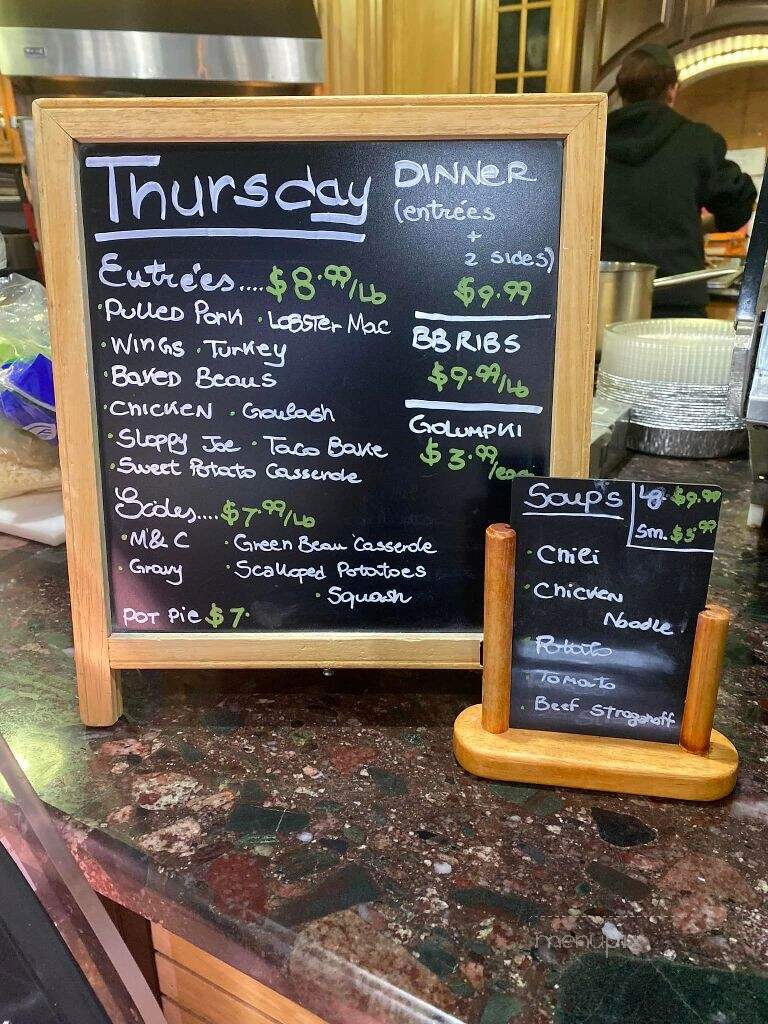 Thursday
Entrées....$8.99/Lb
·Pulled Pork ·LOBSTer Mac
·WINGS ·Turkey
·Baked Beans
·CHICKEN ·Goulash
·Sloppy Joe ·Taco Bake
·Sweet Potato Casserole
Sides....$7.99/Lb
·M&C ·Green Bean Casserole
·Gravy ·Scalloped Potatoes
·Squash
POT Pie $7.
DINNER
(entrées
+
2 sides)
$9.99
BB RIBS
$9.99/Lb
GOLUMPKI
$3.99/
Soup's
Lg. $9.99
Sm. $5.99
·Chili
·Chicken
Noodle
·Potato
·Tomato
·Beef Stroganoff
menupix